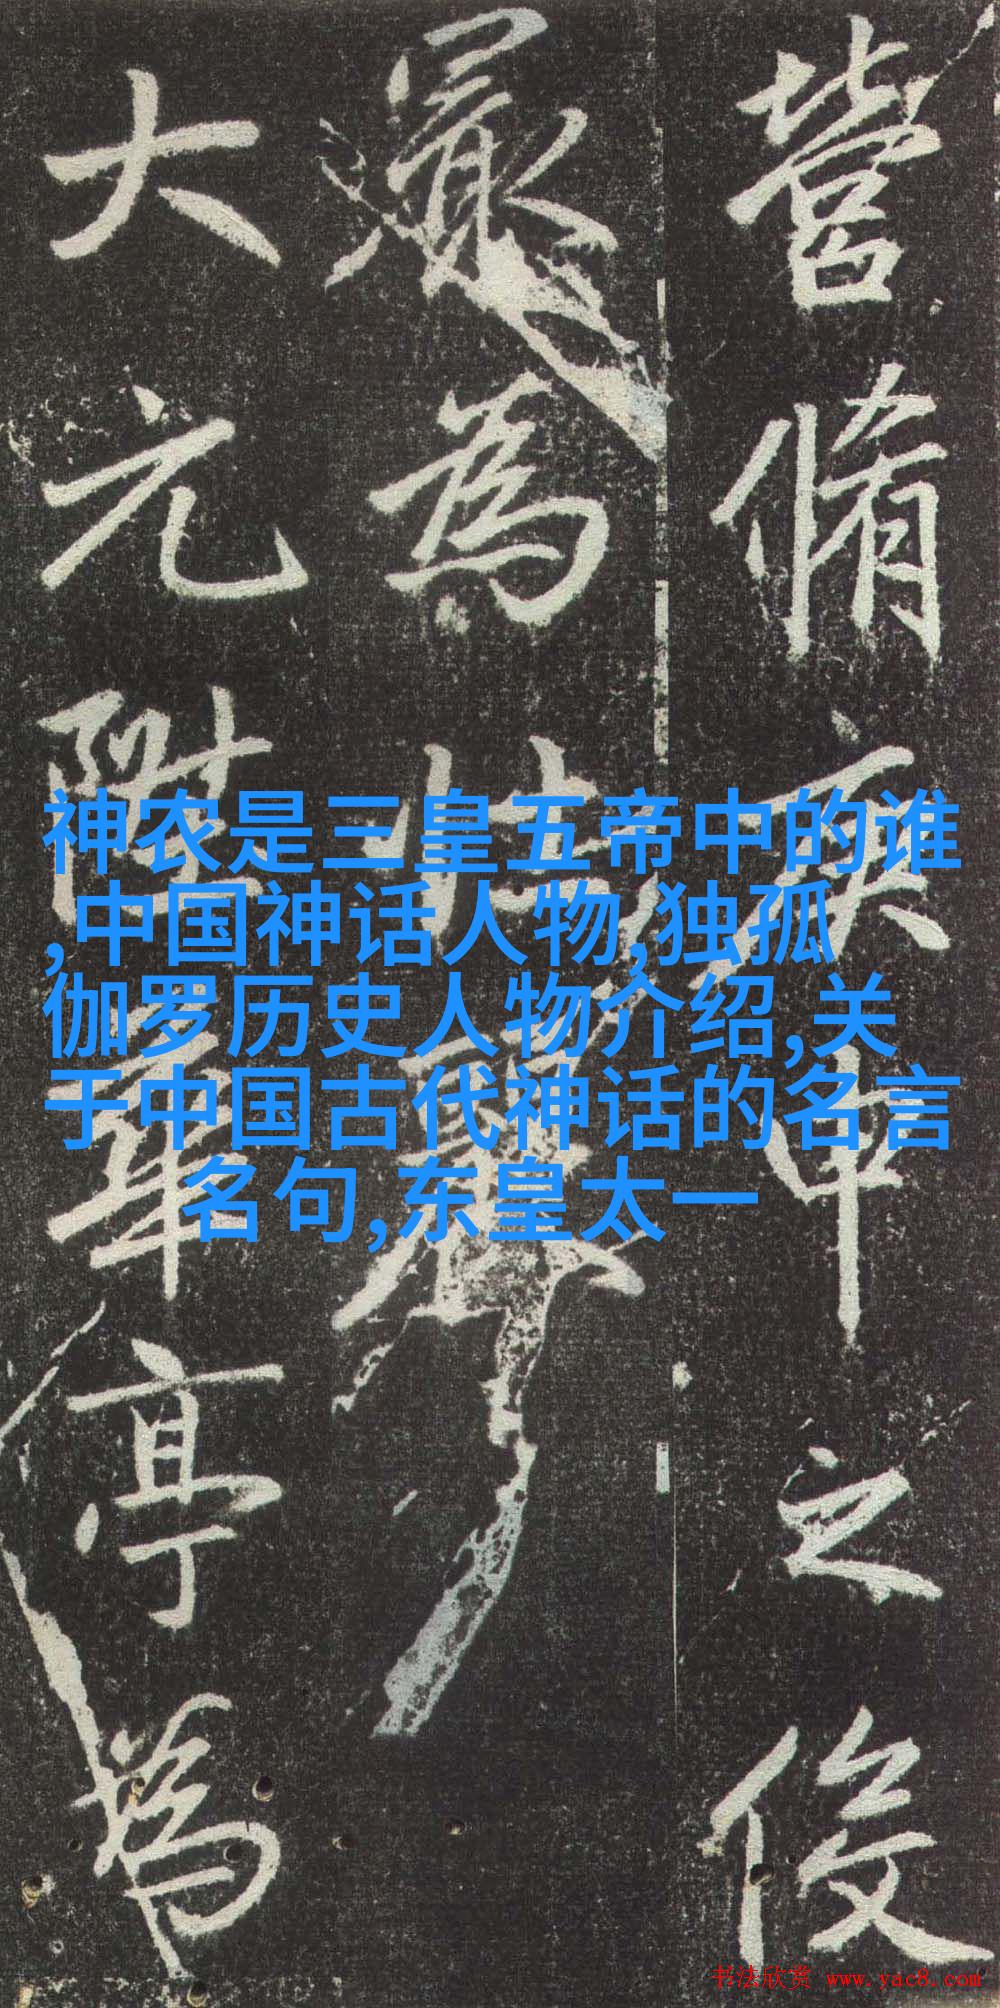 營脩庚申之後
最為壯麗
大元陞華亭為
神农是三皇五帝中的谁
,中国神话人物,独孤
伽罗历史人物介绍,关
于中国古代神话的名言
名句,东皇太一
书法欣赏 www.yac8.com